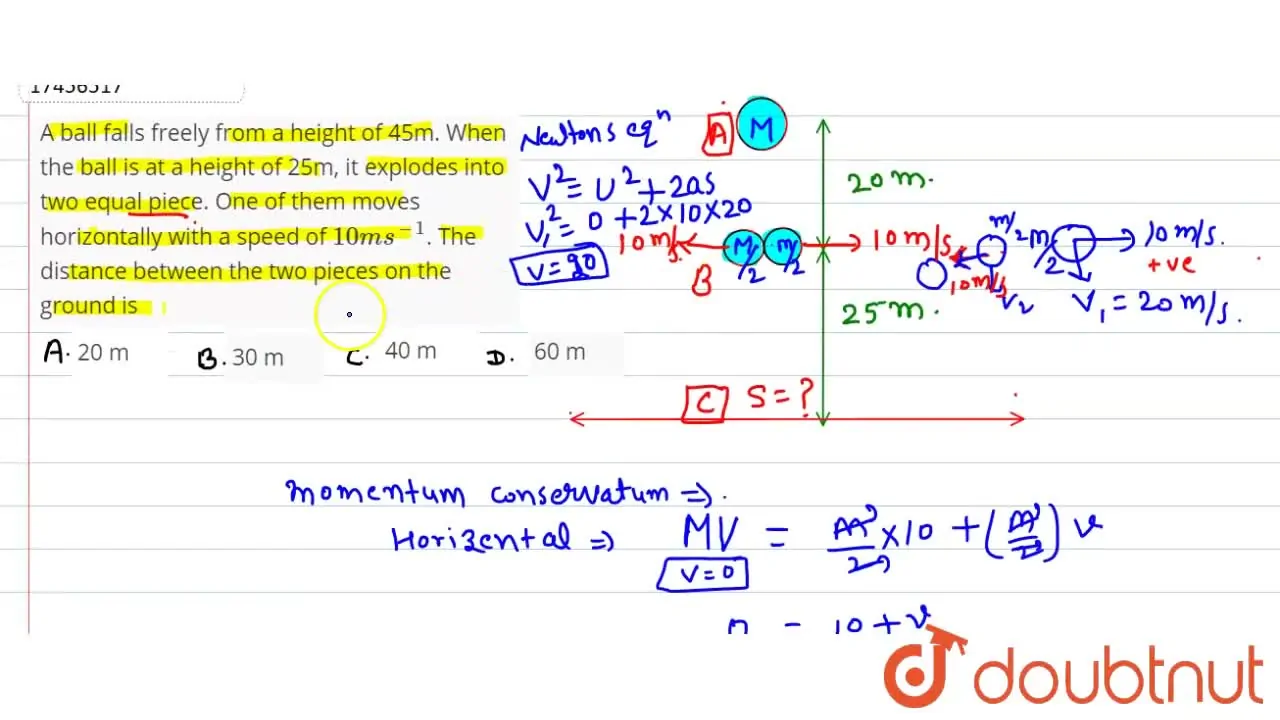 17456517
A ball falls freely from a height of 45m. When
the ball is at a height of 25m, it explodes into
two equal piece. One of them moves
horizontally with a speed of 10ms⁻¹. The
distance between the two pieces on the
ground is
A. 20 m
B. 30 m
C. 40 m
D. 60 m
Newtons eqⁿ
V² = U² + 2as
V₁² = 0 + 2×10×20
V = 20
A
M
20 m.
10 m/s.
M/2
m/2
10 m/s
B
25 m.
C
S = ?
m/2
10 m/s
V₂
m/2
10 m/s.
+ve
V₁ = 20 m/s.
Momentum conservatum ⇒
Horizental ⇒ MV = M/2 × 10 + (M/2) v
V = 0
0 = 10 + v
doubtnut